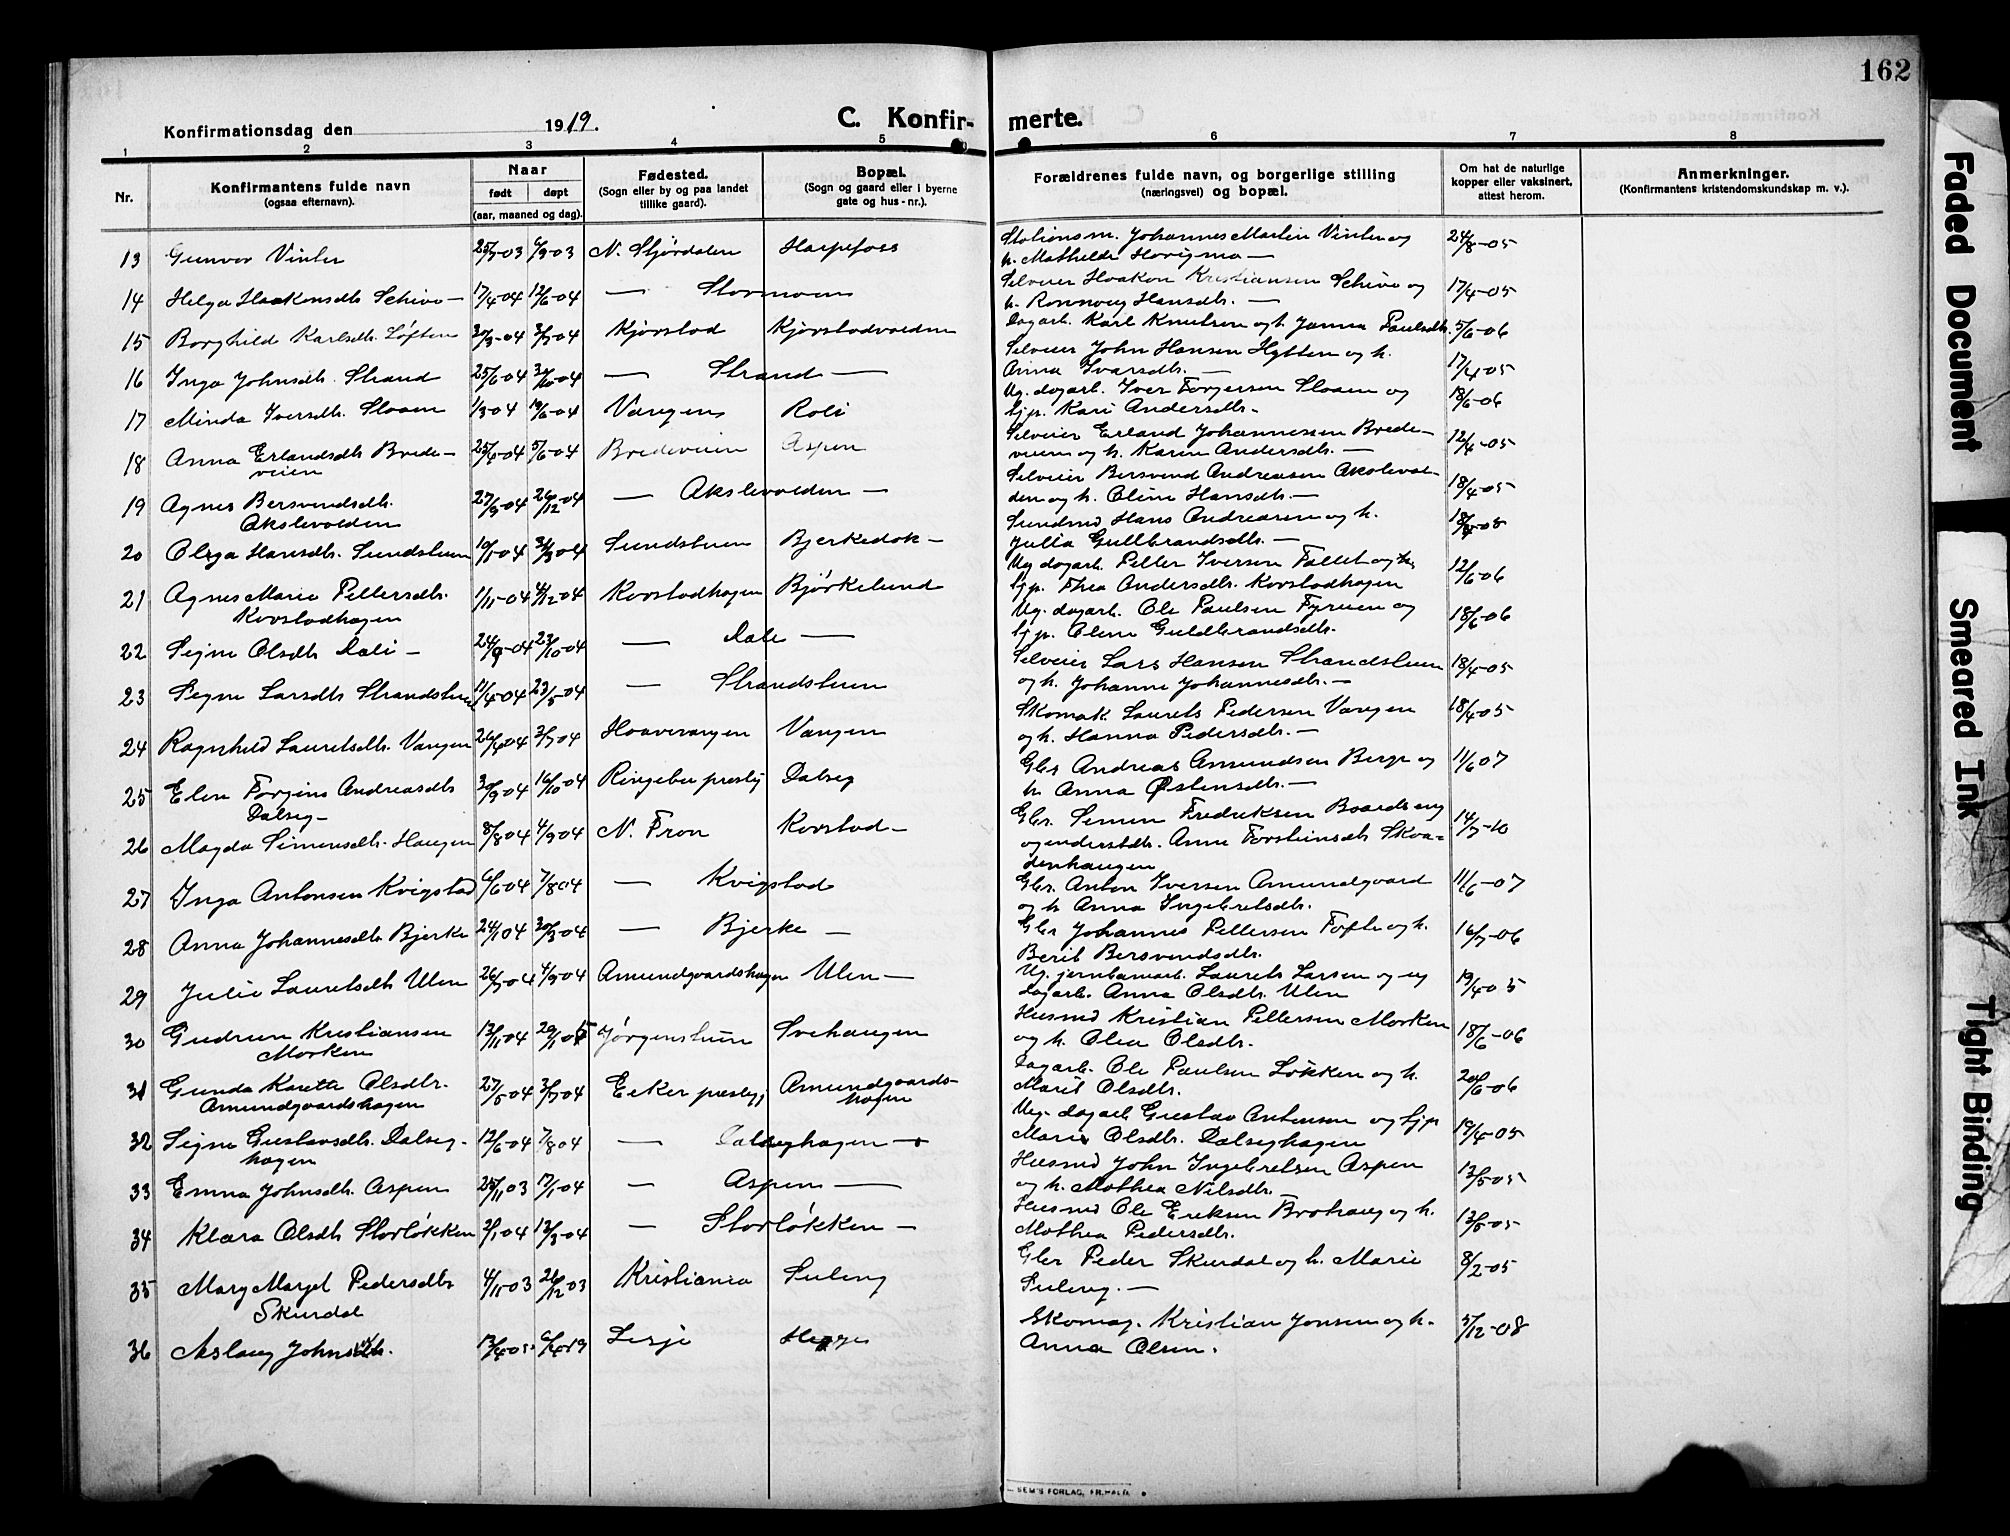 162
C. Konfirmerte.
Konfirmationsdag den 1919.
1 2 3 4 5 6 7 8
Nr.
Konfirmantens fulde navn
(ogsaa efternavn).
Naar
født døpt
(aar, maaned og dag).
Fødested.
(Sogn eller by og paa landet
tillike gaard).
Bopæl.
(Sogn og gaard eller i byerne
gate og hus-nr.).
Forældrenes fulde navn, og borgerlige stilling
(næringsvei) og bopæl.
Om hat de naturlige
kopper eller vaksinert,
attest herom.
Anmerkninger.
(Konfirmantens kristendomskundskap m. v.).
13 Gunvor Vinter 25/7-03 6/9-03 N. Stjørdalen Harpefoss
Stationsm. Johannes Martin Vinter og 24/8-05
h. Mathilde Hovigmo —
14 Helga Haakensdtr. Schive — 17/4-04 12/6-04 — Stormoen
Selveier Haakon Kristiansen Schive og 17/4-05
h. Rønnoug Hansdtr. —
15 Borghild Karlsdtr. Løften 20/3-04 3/7-04 Kjørstad Kjørstadvolden
Dagarb. Karl Knutsen og h. Janna Paulsdtr. 5/6-06
16 Inga Johnsdtr. Strand 25/6-04 3/10-04 — Strand —
Selveier John Hansen Hytten og h. 17/4-05
Anna Ivarsdtr. —
17 Minda Iversdtr. Sloam 1/3-04 19/6-04 Vangen Roli
Ug. dagarb. Iver Torgersen Sloam og 18/6-06
pp. Kari Andersdtr.
18 Anna Erlandsdtr. Brede- 25/4-04 5/6-04 Bredeveien Aspen
veien
Selveier Erland Johannessen Brede- 12/4-05
veien og h. Karin Andersdtr. —
19 Agnes Bersvendsdtr. 27/9-04 26/12-04 — Akslevolden —
Akslevolden
Selveier Bersvend Andreasen Akslevol- 18/4-05
den og h. Oline Hansdtr. —
20 Olga Hansdtr. Sundstuen 10/1-04 Sundstuen Bjerkedok —
Hans Andreasen og h.
Julia Gulbrandsdtr. —
21 Agnes Marie Pettersdtr. 1/11-04 4/12-04 Korstadhagen Bjørkelund
Korstadhagen
Ug. dagarb. Petter Iversen 12/6-06
Thea Andersdtr. Korstadhagen
22 Signe Olsdtr. Dale — 24/9-04 23/10-04 — Dale —
Ug. dagarb. Ole Paulsen Fyruen og 18/6-06
Oline Guldbrandsdtr.
23 Signe Larsdtr. Strandstuen 11/4-04 23/5-04 — Strandstuen
Selveier Lars Hansen Strandstuen 18/4-05
og h. Johanne Johannesdtr. —
24 Ragnhild Lauritsdtr. Vangen 26/4-04 3/7-04 Haavevangen Vangen
Skomak. Laurits Pedersen Vangen 18/4-05
og h. Hanna Pedersdtr. —
25 Elen Torgine Andreasdtr. 30/9-04 16/10-04 Ringebu prestgj Dalseg
Dalseg —
Gbr. Andreas Amundsen Berge og 11/6-07
h. Anna Østensdtr. —
26 Magda Simensdtr. Haugen 8/8-04 4/9-04 N. Fron Korstad —
Gbr. Simen Fredriksen Baardseng 14/7-10
Anne Torstensdtr. Skaa-
denhaugen
27 Inga Antonsen Kvigstad 6/6-04 7/8-04 — Kvigstad
Gbr. Anton Iversen Amundgaard 11/6-07
og h. Anna Ingebretsdtr.
28 Anna Johannesdtr. Bjerke 24/1-04 20/3-04 — Bjerke —
Gbr. Johannes Pettersen Tofte og h. 16/7-06
Berit Bersvendsdtr.
29 Julie Lauritsdtr. Ulen 26/7-04 4/9-04 Amundgaardshagen Ulen —
Ug. jernbanearb. Laurits Larsen og ug 19/4-05
dagarb. Anna Olsdtr. Ulen
30 Gudrun Kristiansen 13/11-04 29/1-05 Jørgenstuen Svehaugen
Morken
Husmd Kristian Pettersen Morken 18/6-06
og h. Olea Olsdtr.
31 Gunda Karette Olsdtr. 27/5-04 3/7-04 Eeker prestgj Amundgaards-
Amundgaardshagen hagen
Dagarb. Ole Paulsen Løkken og h. 20/6-06
Marit Olsdtr.
32 Signe Gustavsdtr. Dalseg- 12/6-04 7/8-04 — Dalseghagen —
hagen
Ug. dagarb. Gustav Antonsen og 19/4-05
Marie Olsdtr. Dalseghagen
33 Emma Johnsdtr. Aspen 25/11-03 17/1-04 — Aspen —
Husmd John Ingebretsen Aspen 13/5-05
og h. Mathea Nilsdtr.
34 Klara Olsdtr. Storløkken 2/1-04 13/3-04 — Storløkken —
Husmd Ole Eriksen Brohaug og h. 13/5-05
Mathea Pedersdtr.
35 Mary Margit Pedersdtr. 4/11-03 26/12-03 Kristiania Suleng
Skurdal
Gbr Peder Skurdal og h. Marie 8/2-05
Suleng. —
36 Aslaug Johnsdtr. 13/4-05 6/4-19 Lesje Hegge
Skomag. Kristian Jonsen og h. 5/12-08
Anna Olsen.
SEM'S FORLAG, FR.HALD.
Faded Document
Smeared Ink
Tight Binding